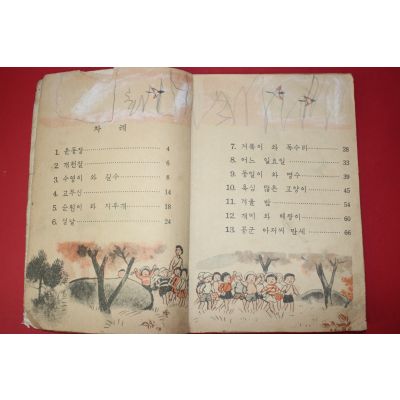 차 례
1. 운동장 4
2. 개천절 6
3. 수영이 와 길수 8
4. 고무신 14
5. 순원이 와 지우개 18
6. 설날 24
7. 거북이 와 독수리 28
8. 어느 일요일 33
9. 봉일이 와 명수 39
10. 욕심 많은 고양이 45
11. 겨울 밤 54
12. 개미 와 매짱이 60
13. 공군 아저씨 만세 66